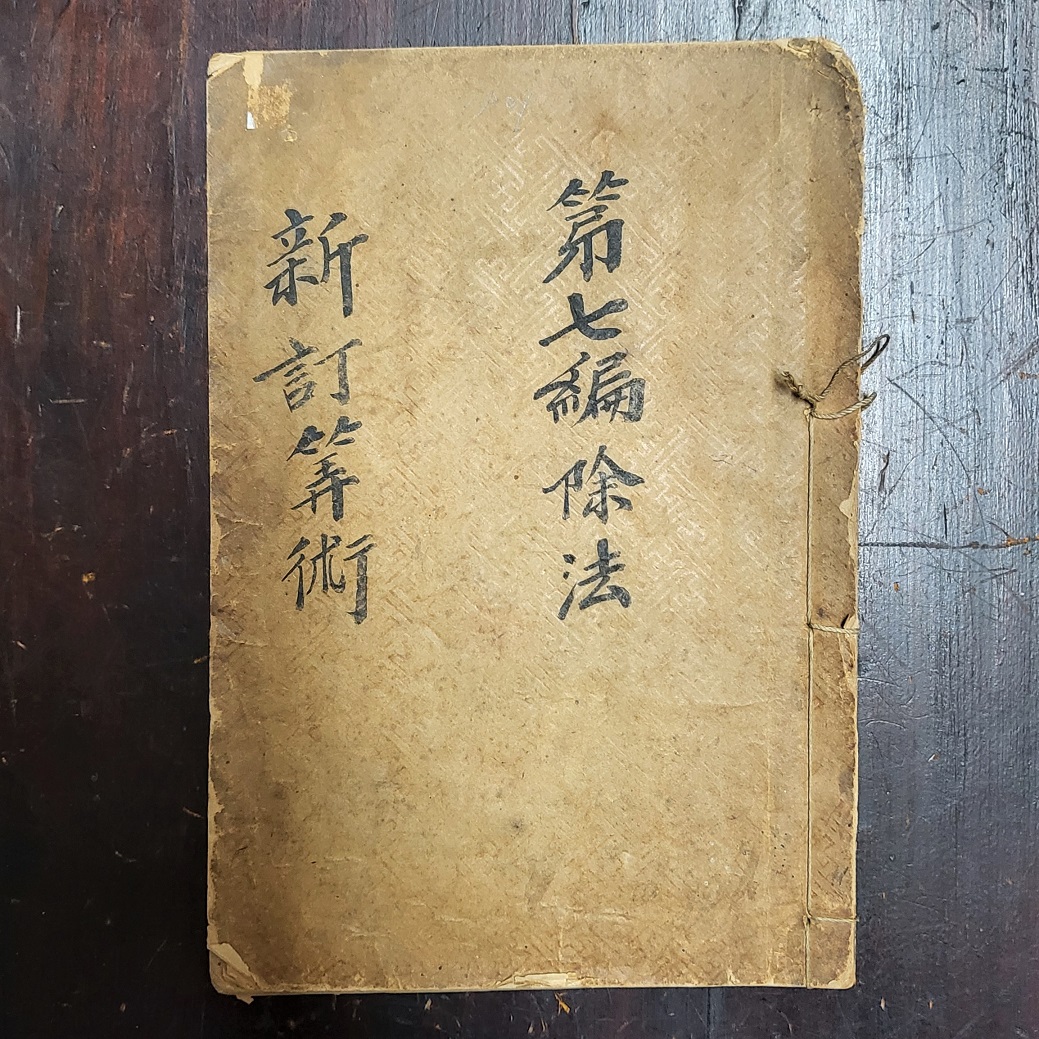 第七編除法
新訂筭術